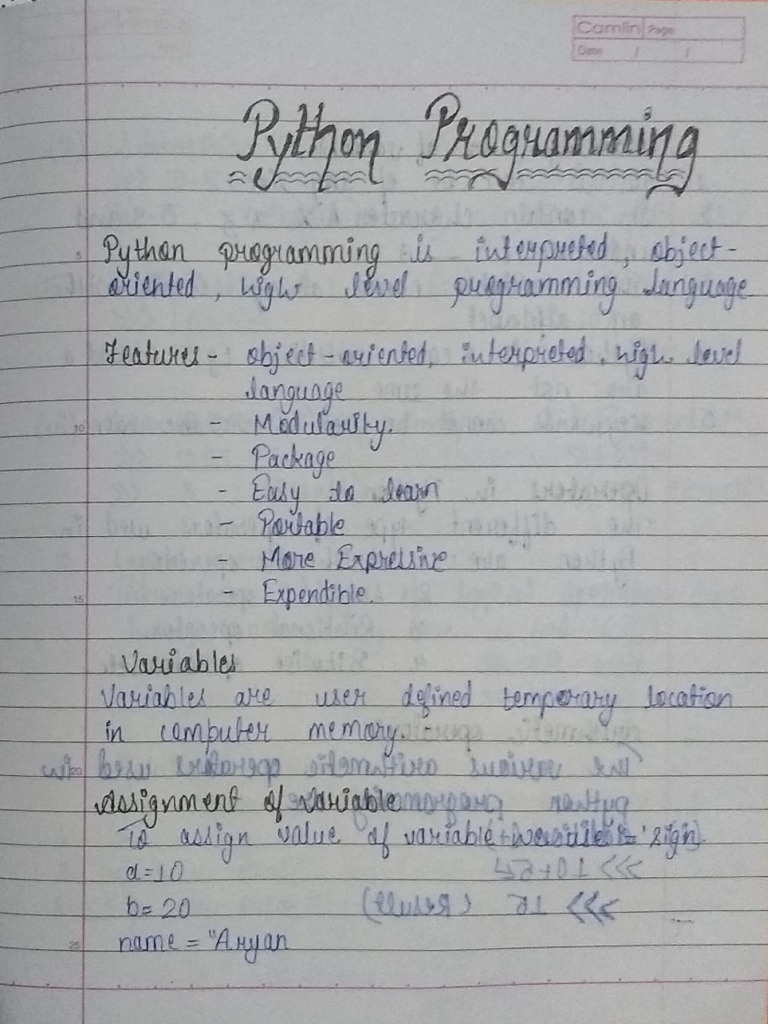 Camlin Page
Date / /
Python Programming
5 Python programming is interpreted, object-
oriented, high level programming language
Features - object-oriented, interpreted, high level
language
10 - Modularity.
- Package
- Easy to learn
- Portable
- More Expressive
15 - Expendible.
Variables
Variables are user defined temporary location
in computer memory.
20
Assignment of Variable
To assign value of variable '=' sign
a=10
b=20
25 name = "Aryan